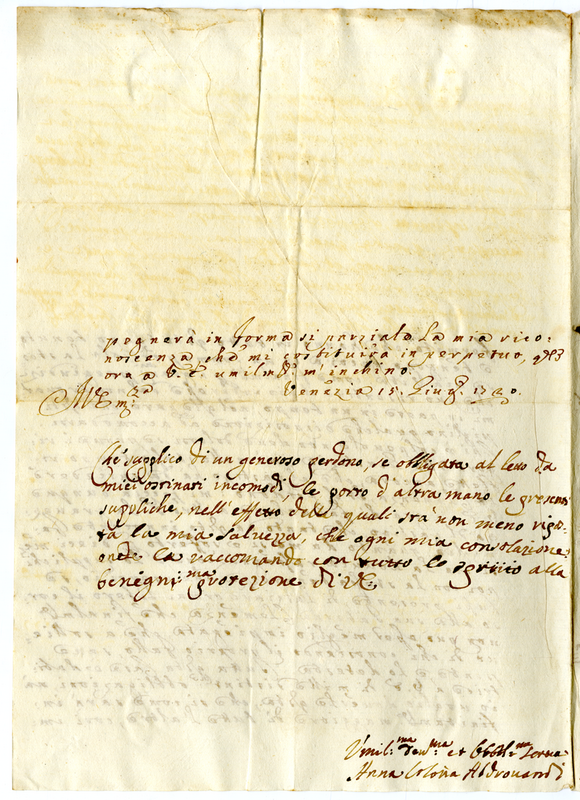 pegnerà in forma si parziale la mia rico-
noscenza, che mi costituirà in perpetuo, 
ora a V. E. umilmte m'inchino.
Venezia 15. Giug.
Che supplico di un generoso perdono, se obligata al letto da
miei ordinari incomodi, le porgo d'altra mano le presenti
suppliche, nell'effetto delle quali stà non meno ripos-
ta la mia salvezza, che ogni mia consolazione
onde la raccomando con tutto lo spirito alla
benigni:ma protezione di V.E.
Umil:ma Dev:ma et Obbl:ma Serva
Anna Colona Aldrovandi